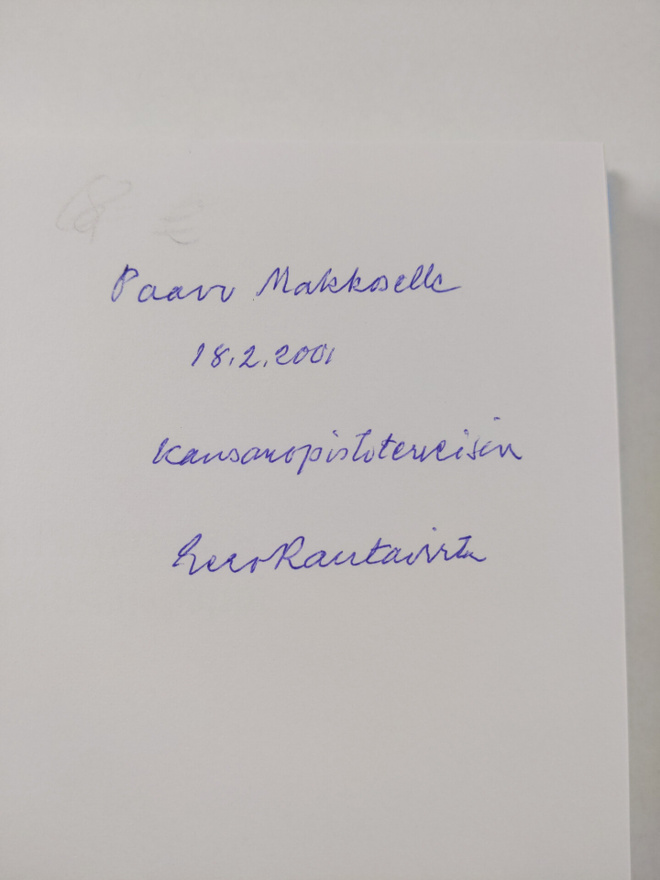 Paavo Makkoselle
18.2.2001
kansanopistoterveisin
Eero Rautavirta